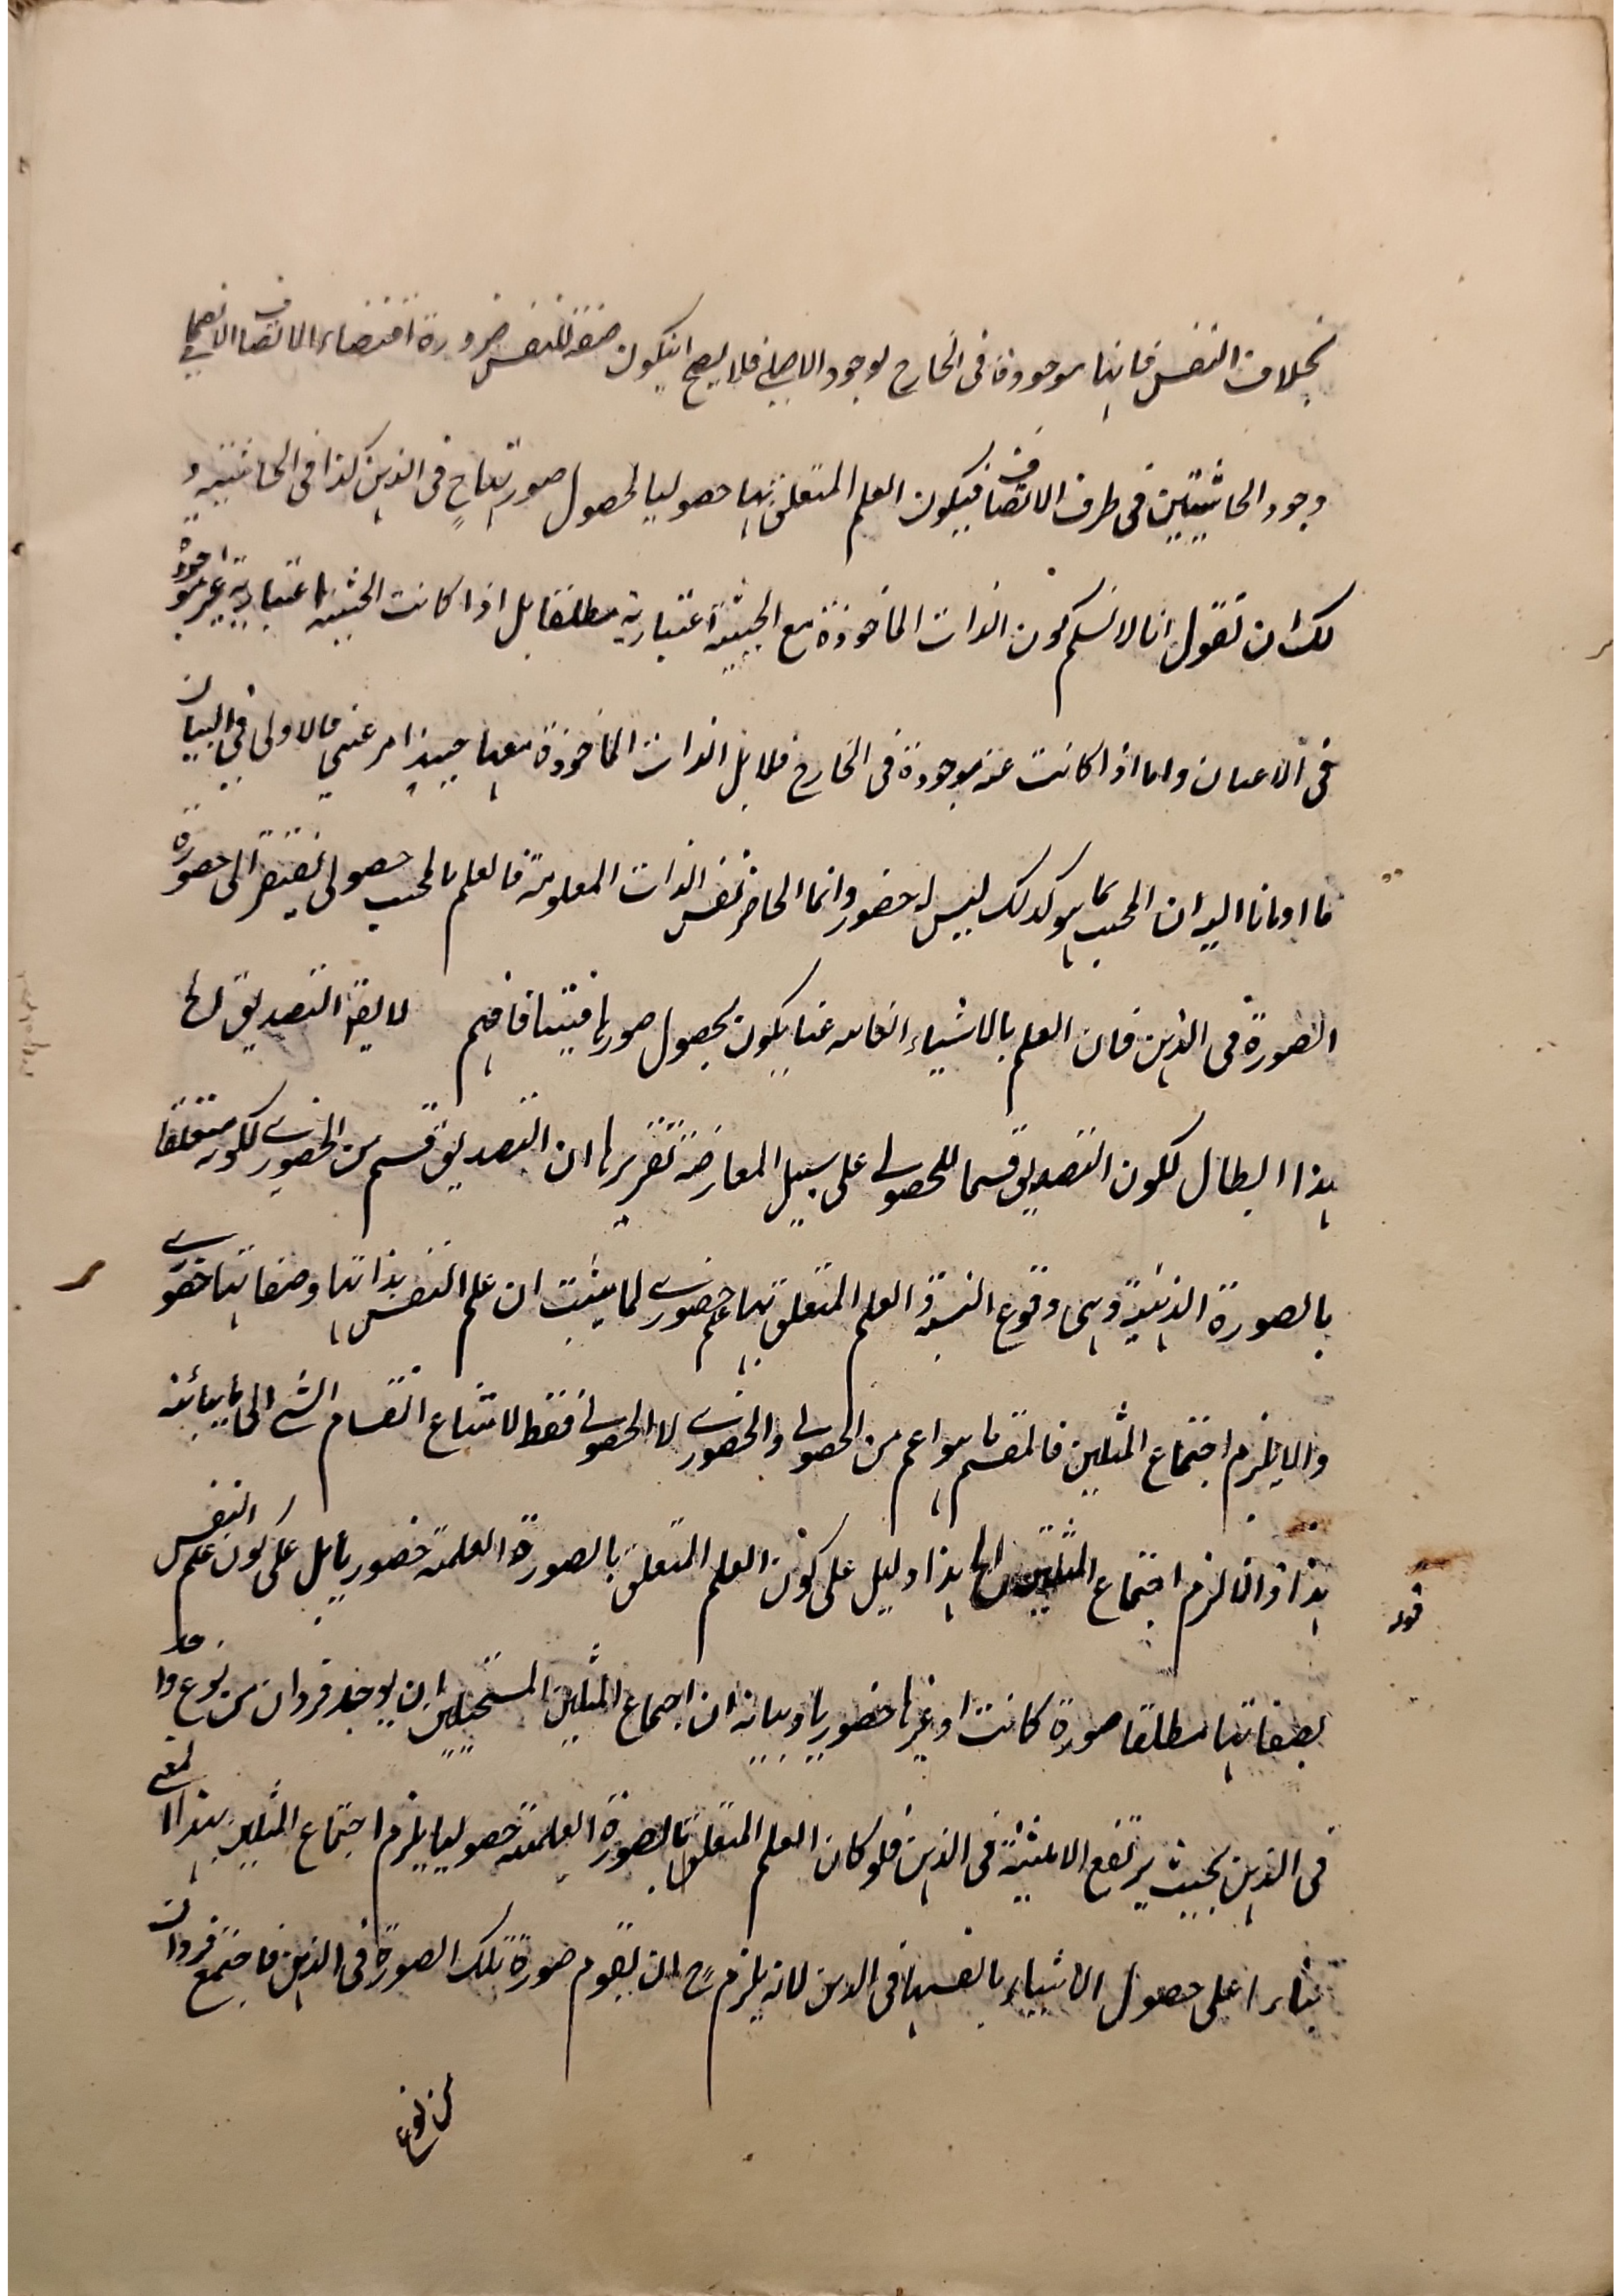 بخلاف النفس فانها موجودة فى الخارج بوجود الاصلى فلا يصح ان يكون صفة للنفس ضرورة اقتضاء الاتصاف الانضمامى
وجود الحاشيتين فى ظرف الاتصاف فيكون العلم المتعلق بها حصوليا لحصول صورتها ح فى الذهن كذا فى الحاشية و
لك ان تقول انا لا نسلم كون الذات الماخوذة مع الحيثية اعتبارية مطلقا بل اذا كانت الحيثية اعتبارية غير موجودة
فى الاعيان واما اذا كانت موجودة فى الخارج فلا بل الذات الماخوذة معها حينئذ امر عينى فالاولى فى البيان
ما اومانا اليه ان المحيث كما هو كذلك ليس له حضور وانما الحاضر نفس الذات المعلومة فالعلم بالمحيث حصولى يفتقر الى حضور
الصورة فى الذهن فان العلم بالاشياء الغائبة عنا يكون بحصول صورها فينا فافهم لا يقال التصديق الخ
هذا ابطال لكون التصديق قسما للحصولى على سبيل المعارضة تقريرها ان التصديق قسم من الحضورى لكونه متعلقا
بالصورة الذهنية وهى وقوع النسبة والعلم المتعلق بها علم حضورى لما يثبت ان علم النفس بذاتها وصفاتها حضورى
والا يلزم اجتماع المثلين فالمقسم ما هو اعم من الحصولى والحضورى لا الحصولى فقط لامتناع انقسام الشئ الى ما يباينه
قوله
هذا والا لزم اجتماع المثلين الخ هذا دليل على كون العلم المتعلق بالصورة العلمية حضوريا بل على كون علم النفس
بصفاتها مطلقا صورة كانت او غيرها حضوريا وبيانه ان اجتماع المثلين المستحيلين ان يوجد فردان من نوع واحد
فى الذهن بحيث يرتفع الاثنينية فى الذهن فلو كان العلم المتعلق بالصورة العلمية حصوليا يلزم اجتماع المثلين بهذا المعنى
بناء اعلى حصول الاشياء بانفسها فى الذهن لانه يلزم ح ان تقوم صورة تلك الصورة فى الذهن فاجتمع فردان
من نوع